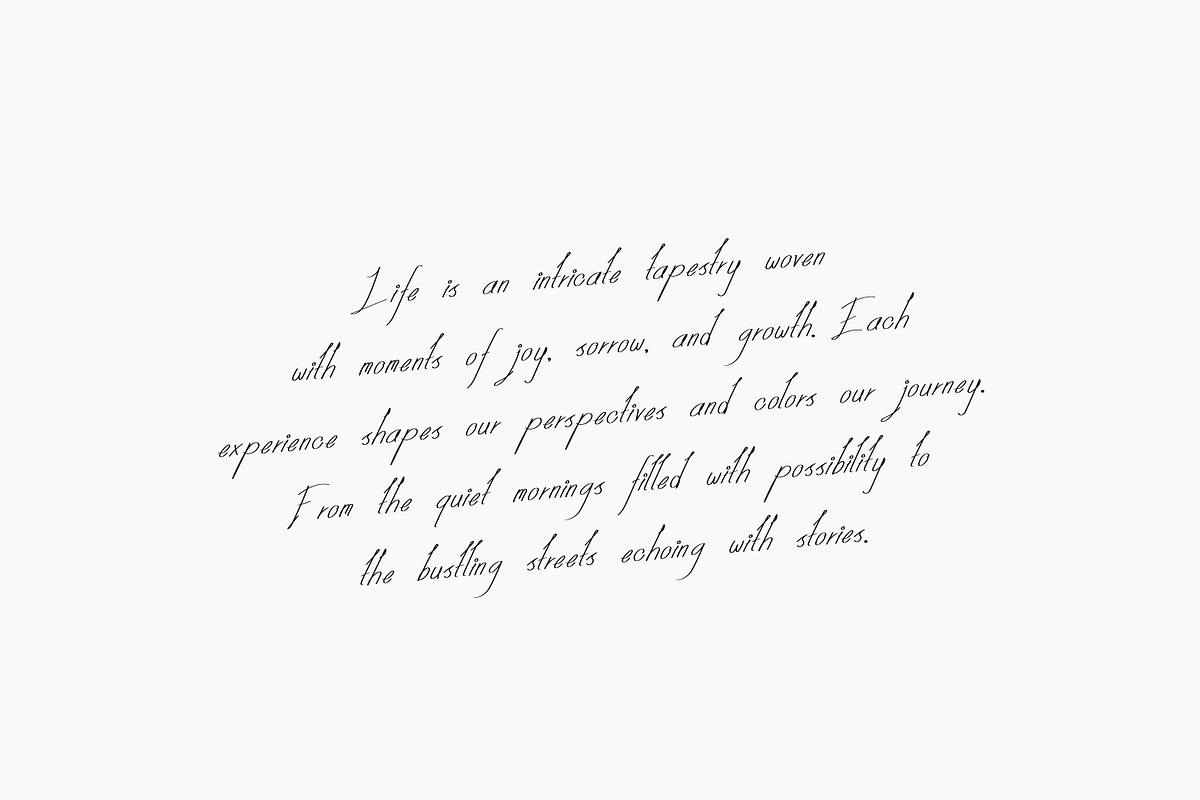 Life is an intricate tapestry woven
with moments of joy, sorrow, and growth. Each
experience shapes our perspectives and colors our journey.
From the quiet mornings filled with possibility to
the bustling streets echoing with stories.